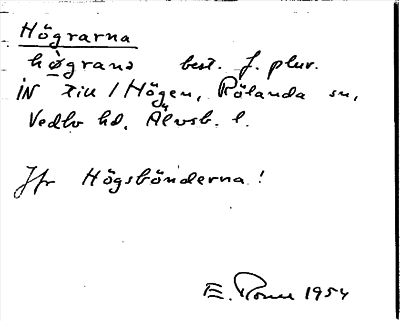 Högrarna
hø̀grana best. f. plur.
IN till 1 Högen, Rölanda sn,
Vedbo hd, Älvsb. l.
Jfr Högsbönderna!
E. 1954